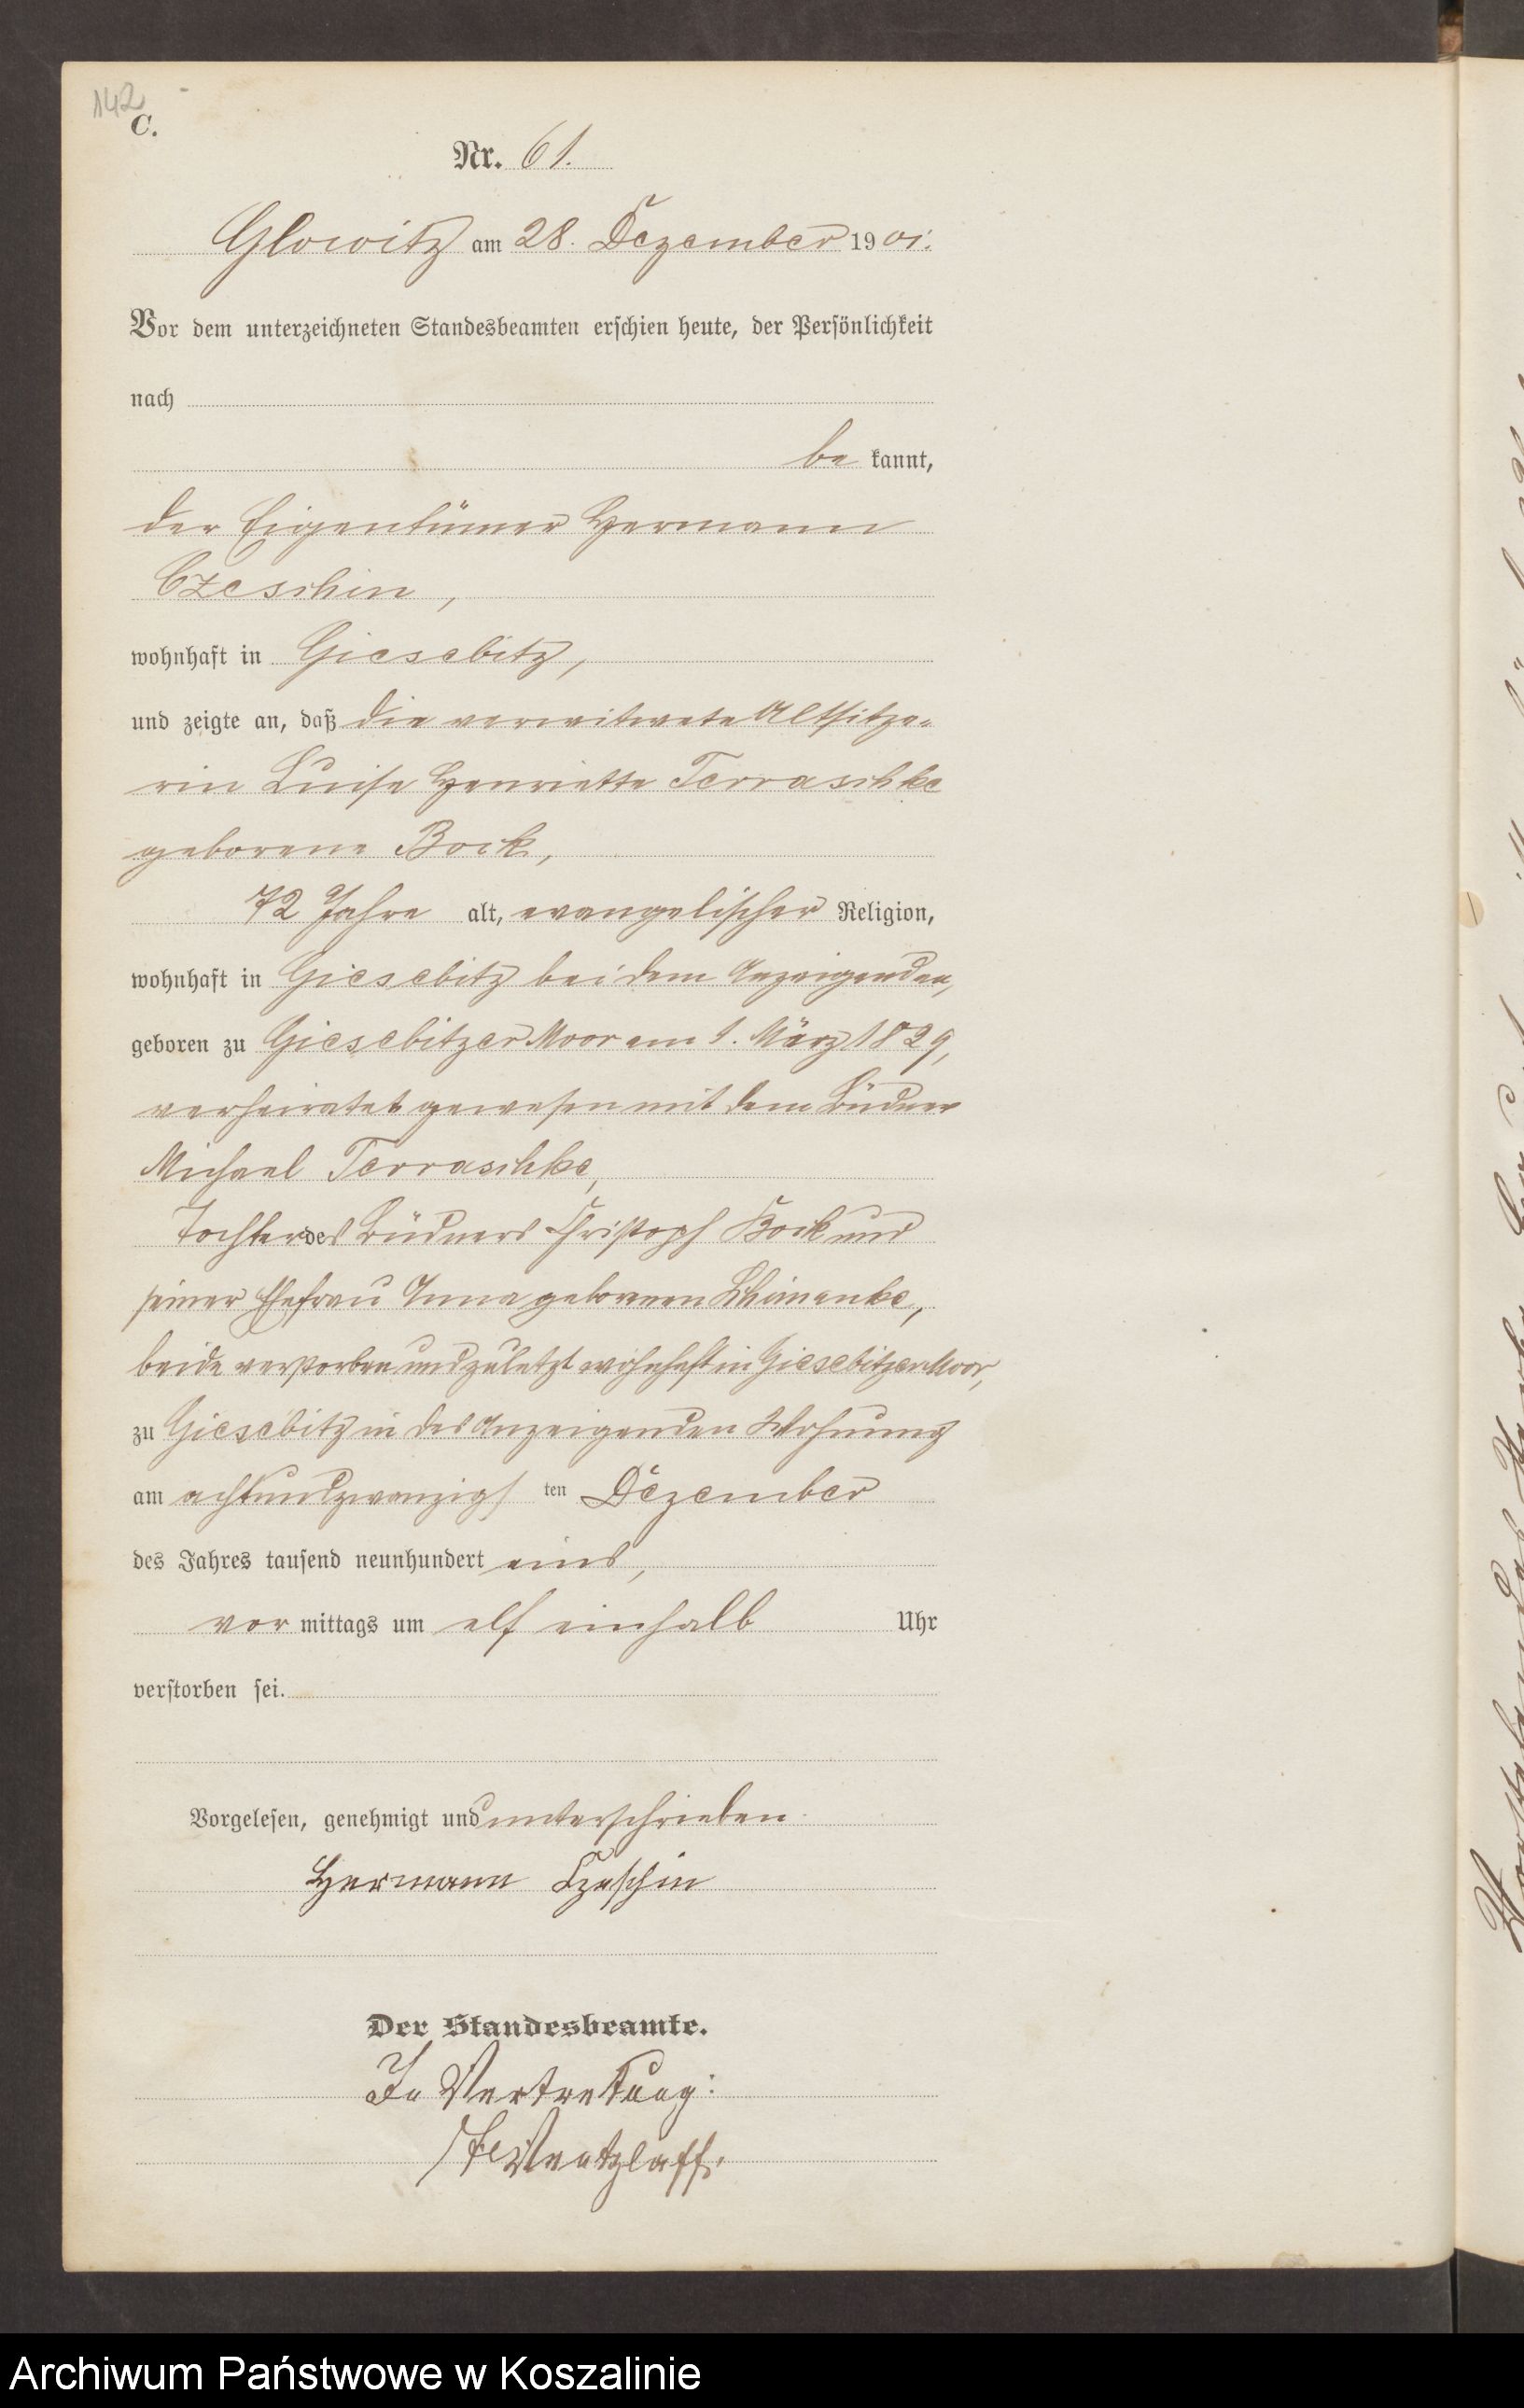 142
C.
Nr. 61.
Glowitz am 28. Dezember 1901.
Vor dem unterzeichneten Standesbeamten erschien heute, der Persönlichkeit
nach
be kannt,
der Eigentümer Hermann
Czeschin,
wohnhaft in Giesebitz,
und zeigte an, daß die verwitwete Altsitze-
rin Luise Henriette Terraschke
geborene Bock,
72 Jahre alt, evangelischer Religion,
wohnhaft in Giesebitz bei dem Anzeigenden,
geboren zu Giesebitzer Moor am 1. März 1829,
verheiratet gewesen mit dem Büdner
Michael Terraschke,
Tochter des Büdners Christoph Bock und
seiner Ehefrau Anna geborenen
beide verstorben und zuletzt wohnhaft in Giesebitzer Moor,
zu Giesebitz in des Anzeigenden Wohnung
am achtundzwanzigs ten Dezember
des Jahres tausend neunhundert eins,
vor mittags um elf einhalb Uhr
verstorben sei.
Vorgelesen, genehmigt und unterschrieben
Hermann Czeschin
Der Standesbeamte.
In Vertretung:
Wentzlaff.
Archiwum Państwowe w Koszalinie